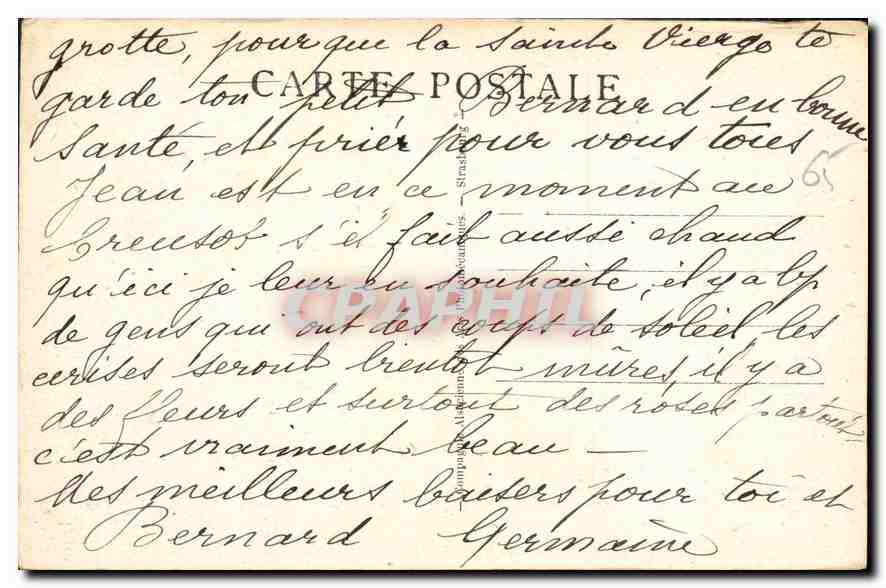 grotte, pour que la Sainte Vierge te
CARTE POSTALE
garde ton petit Bernard en bonne
Santé, et prier pour vous tous
65
Jean est en ce moment au
Creusot s'il fait aussi chaud
qu'ici je leur en souhaite, il y a bp
CPAPHIL
de gens qui ont des coups de soleil, les
cerises seront bientôt mûres, il y a
des fleurs et surtout des roses partout
c'est vraiment beau —
Mes meilleurs baisers pour toi et
Bernard Germaine
Compagnie Alsacienne des Arts Photomécaniques. - Strasbourg